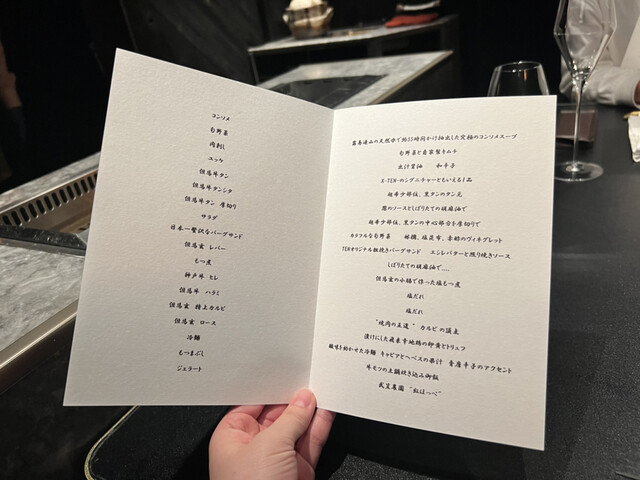 コンソメ
旬野菜
肉刺し
ユッケ
但馬牛タン
但馬牛タンシタ
但馬牛タン 厚切り
サラダ
日本一贅沢なバーグサンド
但馬玄 レバー
もつ煮
神戸牛 ヒレ
但馬牛 ハラミ
但馬玄 特上カルビ
但馬玄 ロース
冷麺
もつまぶし
ジェラート
の天然水で約55時間かけ抽出した究極のコンソメスープ
旬野菜と自家製キムチ
出汁醤油 和辛子
X-TEH-のシグニチャーともいえる1品
超希少部位、黒タンのタン元
しぼりたての胡麻油で
超希少部位、黒タンの中心部分を厚切りで
カラフルな旬野菜 林檎、塩昆布、赤酢のヴィネグレット
TEHオリジナル粗挽きバーグサンド エシレバターと照り焼きソース
しぼりたての胡麻油で....
但馬玄の小腸で作った塩もつ煮
塩だれ
塩だれ
"焼肉の王道" カルビの頂点
漬けにした歳来幸地鶏の卵黄とトリュフ
酸味を効かせた冷麺 キャビアとヘベスの果汁 青唐辛子のアクセント
牛モツの土鍋炊き込み御飯
農園 "紅ほっぺ"